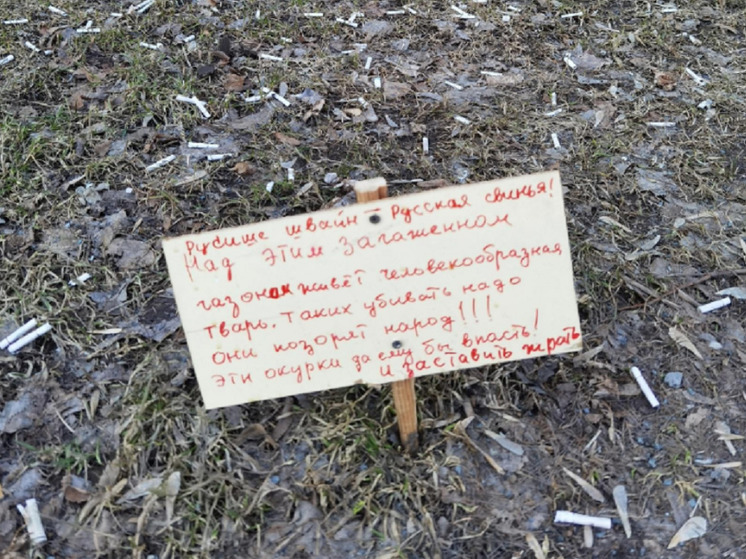 Русише швайн – Русская свинья!
Над этим загаженном
газоном живёт человекообразная
тварь. Таких убивать надо
они позорят народ!!!
Эти окурки да ему бы в пасть!
и заставить жрать